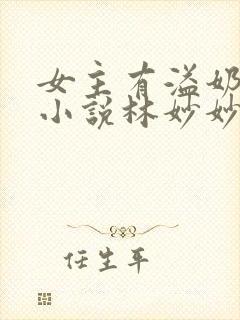 女主有溢奶
小说林妙妙
任生平